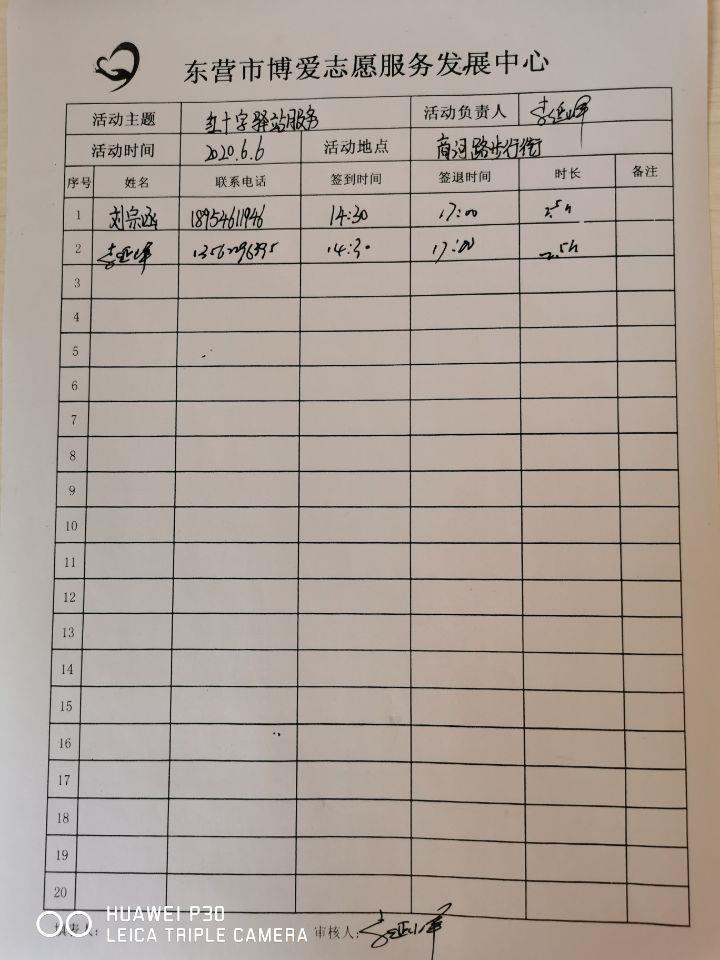 东营市博爱志愿服务发展中心
活动主题 红十字驿站服务 活动负责人
活动时间 2020.6.6 活动地点 商河路步行街
序号 姓名 联系电话 签到时间 签退时间 时长 备注
1 刘宗涵 18954611946 14:30 17:00 2.5h
2 14:30 17:00 2.5h
3
4
5
6
7
8
9
10
11
12
13
14
15
16
17
18
19
20
填表人: 审核人:
HUAWEI P30
LEICA TRIPLE CAMERA